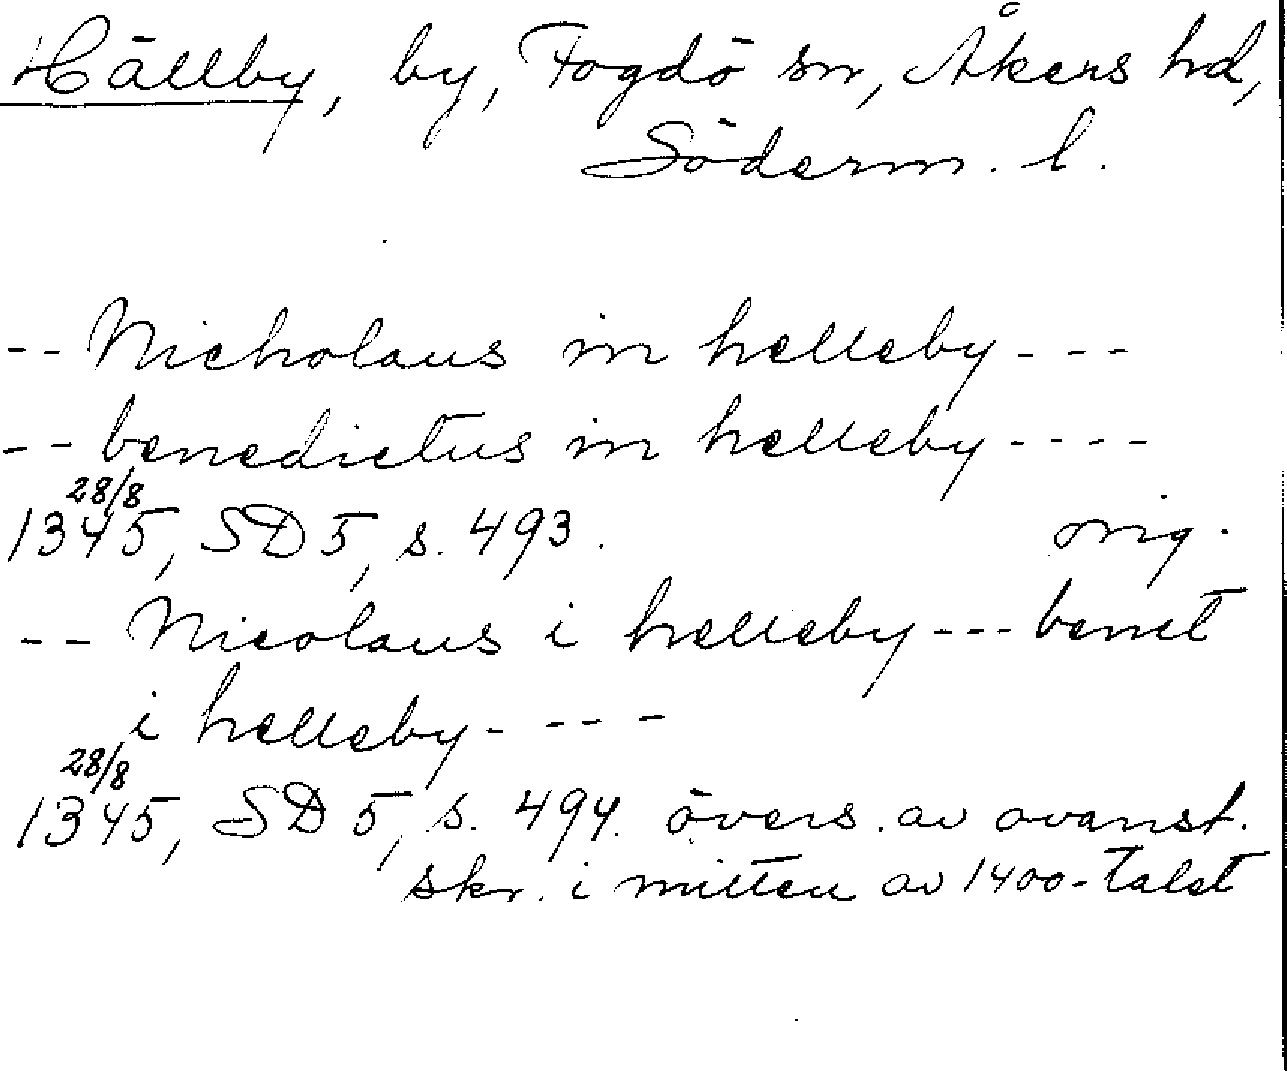 Hällby, by, Fogdö sn, Åkers hd,
Söderm. l.
-- Nicholaus in helleby ---
-- benedictus in helleby ----
28/8
1345, SD 5, s. 493. orig.
-- Nicolaus i helleby --- benct
i helleby ----
28/8
1345, SD 5, s. 494. övers. av ovanst.
skr. i mitten av 1400-talet